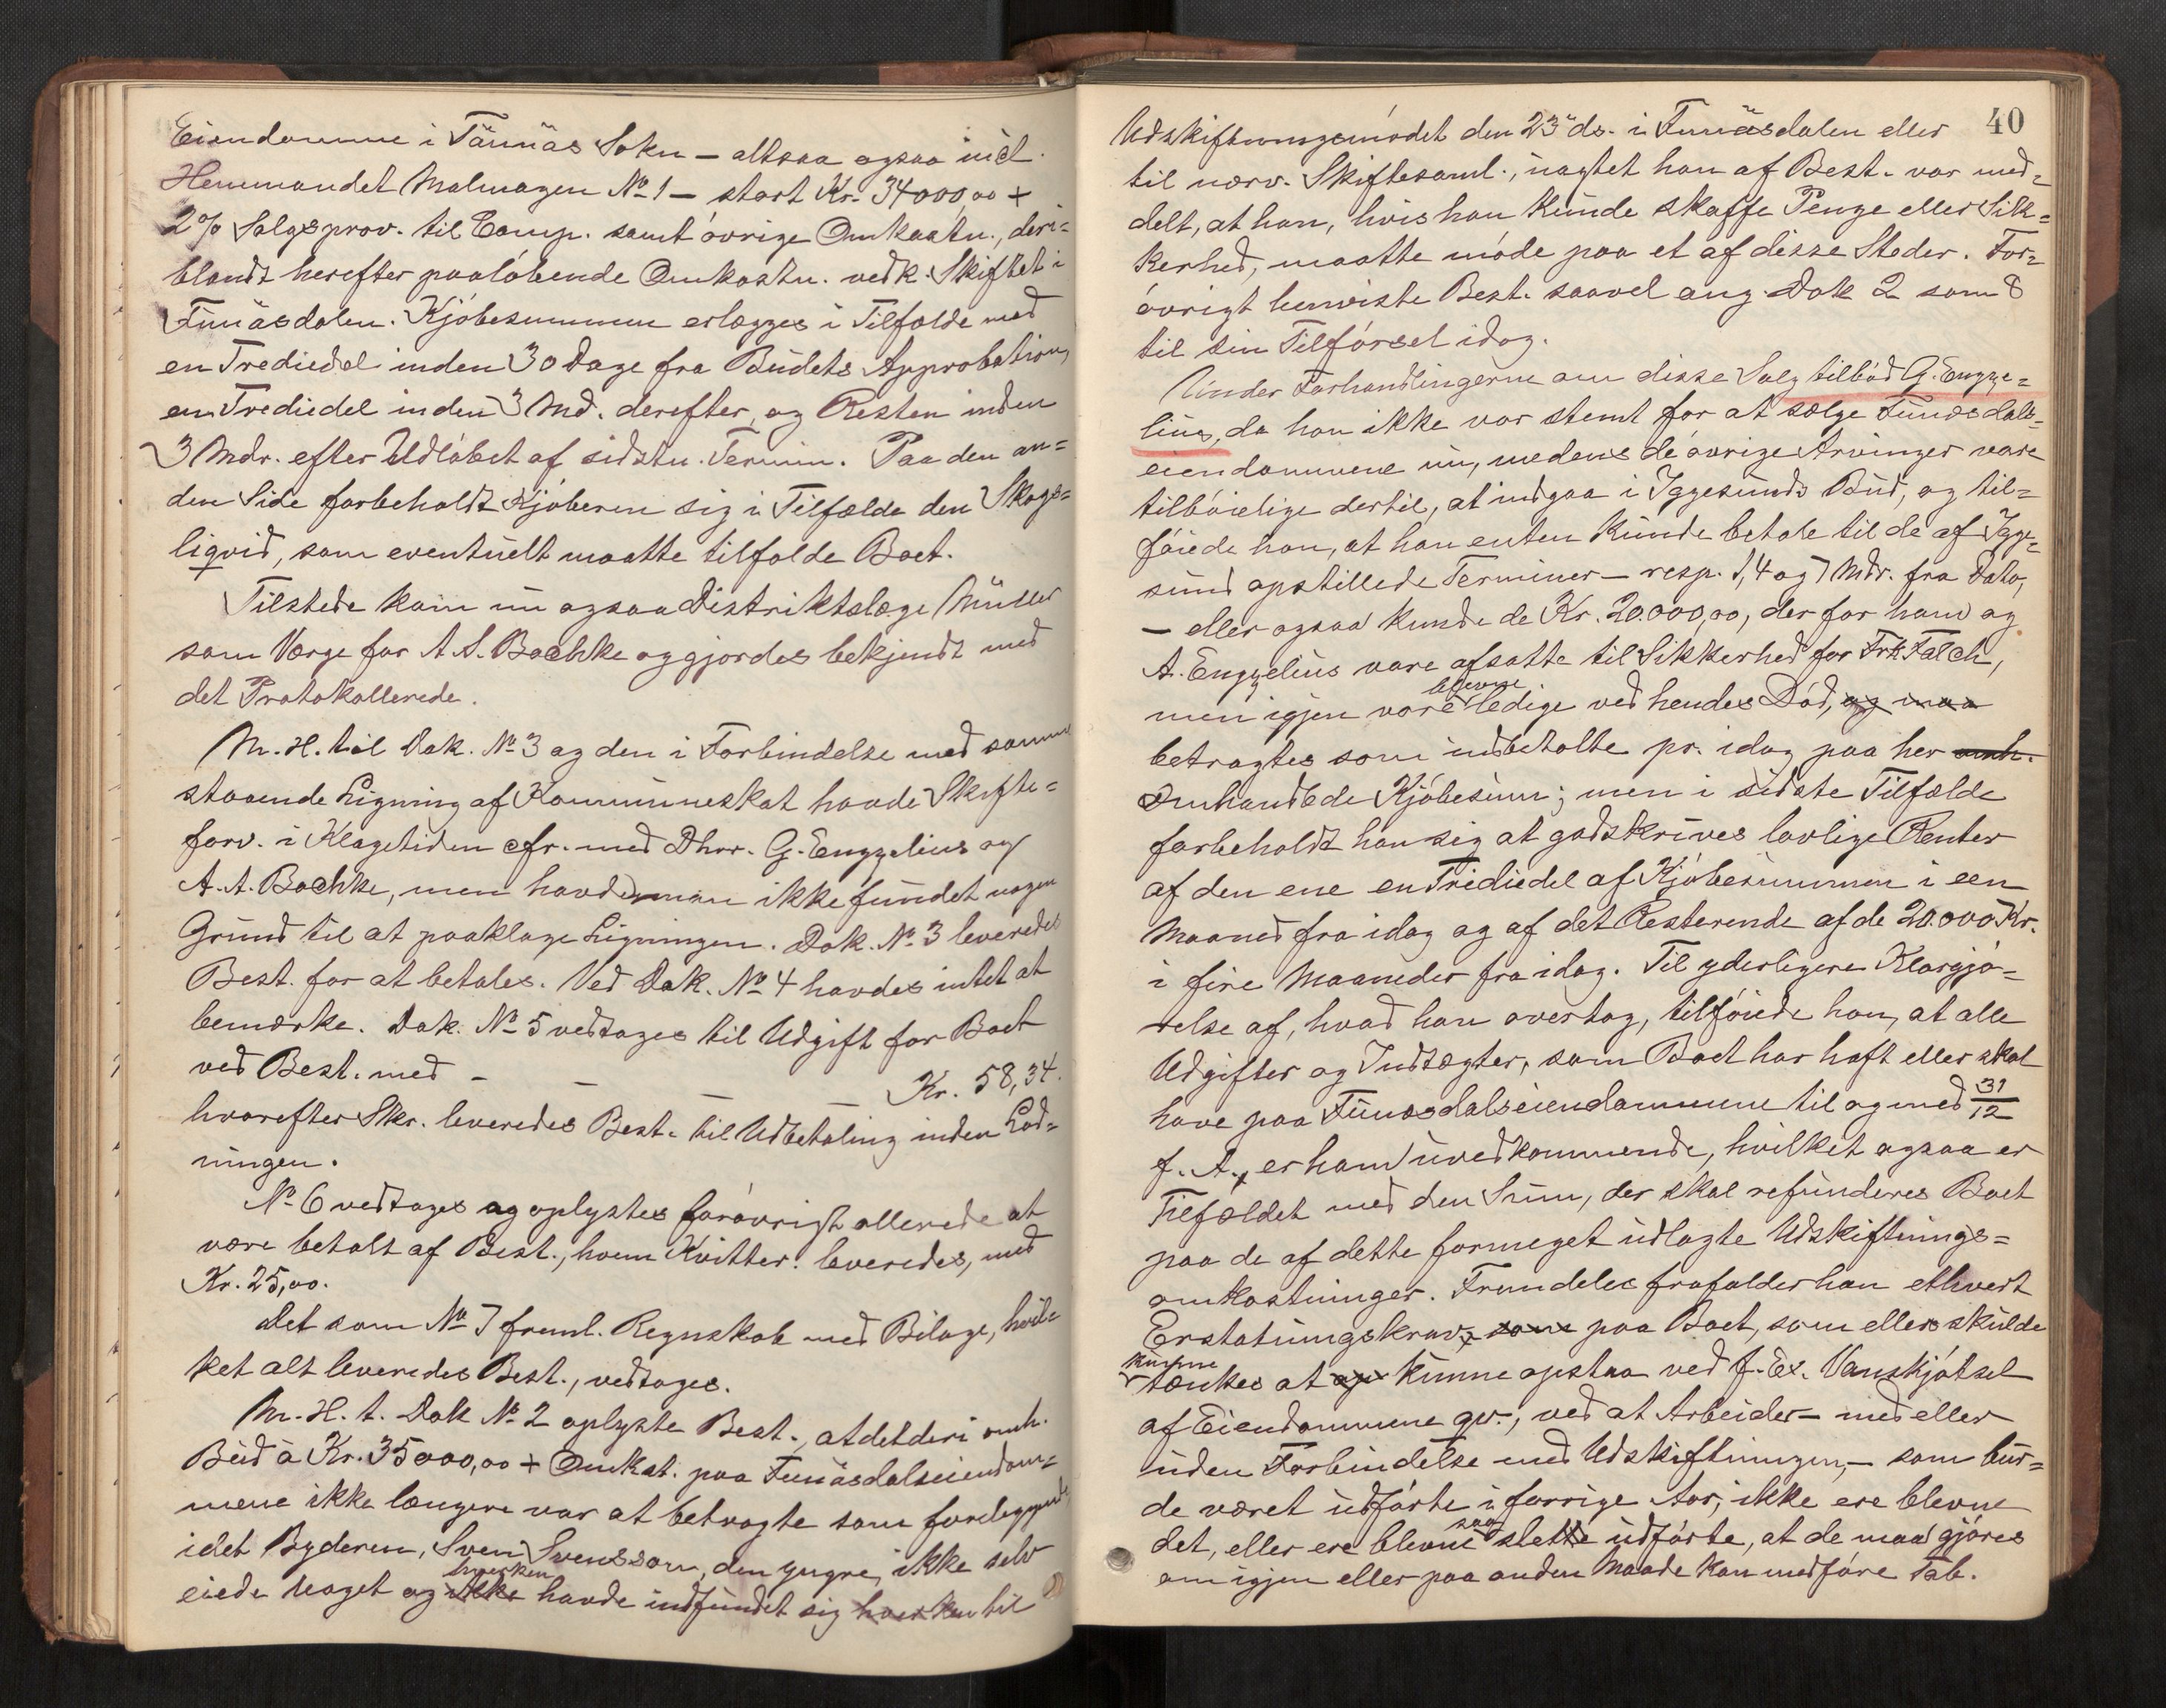 Eiendomme i Tännäs Sokn – altsaa ogsaa incl.
Hemmandet Malmagen No 1 – stort Kr. 34000,00 +
2% Salgsprov. til Comp. samt övrige Omkostn., deri=
blandt herefter paalöbende Omkostn. vedk. Skiftet i
Funäsdalen. Kjöbesummen erlægges i Tilfælde med
en Trediedel inden 30 Dage fra Budets Approbation,
en Trediedel inden 3 Md. derefter, og Resten inden
3 Mdr. efter Udlöbet af sidstn. Termin. Paa den an=
den Side forbeholdt Kjöberen sig i Tilfælde den Skogs=
liqvid, som eventuelt maatte tilfalde Boet.
Tilstede kom nu ogsaa Distriktslæge Müller
som Værge for A. S. Bachke og gjordes bekjendt med
det Protokollerede.
M. H. til Dok. No 3 og den i Forbindelse med samme
staaende Ligning af Kommuneskat havde Skifte=
forv. i Klagetiden cfr. med Dhrr. G. Engzelius og
A. A. Bachke, men havde man ikke fundet nogen
Grund til at paaklage Ligningen. Dok. No 3 leveredes
Best. for at betales. Ved Dok. No 4 havdes intet at
bemærke. Dok. No 5 vedtages til Udgift for Boet
ved Best. med – – – Kr. 58,34.
hvorefter Skr. leveredes Best. til Udbetaling inden Lad=
ningen.
No 6 vedtages og oplystes forövrigt allerede at
være betalt af Best., hvem Kvitter. leveredes, med
Kr. 25,00.
Det som No 7 freml. Regnskab med Bilage, hvil=
ket alt leveredes Best., vedtages.
M. H. t. Dok No 2 oplyste Best., at det deri omh.
Bud à Kr. 35000,00 + Omkst. paa Funäsdalseiendom=
mene ikke længere var at betragte som foreliggende,
idet Byderen, Sven Svensson, den yngre, ikke selv
hverken
eiede Noget og ikke havde indfundet sig hverken til
40
Udskiftningsmödet den 23de ds. i Funäsdalen eller
til nærv. Skiftesaml., uagtet han af Best. var med=
delt, at han, hvis han kunde skaffe Penge eller Sik=
kerhed, maatte möde paa et af disse Steder. For=
övrigt henviste Best. saavel ang. Dok 2 som 8
til sin Tilförsel idag.
Under Forhandlingerne om disse Salg tilböd G. Engze=
lius, da han ikke var stemt for at sælge Funæsdals=
eiendommene nu, medens de övrige Arvinger vare
tilböielige dertil, at indgaa i Iggesunds Bud, og til=
föiede han, at han enten kunde betale til de af Igge=
sund opstillede Terminer – resp. 1, 4 og 7 Mdr. fra Dato,
– eller ogsaa kunde de Kr. 20.000,00, der for ham og
A. Engzelius vare afsatte til Sikkerhed for Frk Falch,
blevne
men igjen vare ledige ved hendes Död, og maa
betragtes som indbetalte pr. idag paa her omh.
Omhandlede Kjöbesum; men i sidste Tilfælde
forbeholdt han sig at godskrives lovlige Renter
af den ene en Trediedel af Kjöbesummen i een
Maaned fra idag og af det Resterende af de 20.000 Kr.
i fire Maaneder fra idag. Til yderligere Klargjö=
relse af, hvad han overtog, tilföiede han, at alle
Udgifter og Indtægter, som Boet har haft eller skal
have paa Funæsdalseiendommene til og med 31/12
f. A., er ham uvedkommende, hvilket ogsaa er
Tilfældet med den Sum, der skal refunderes Boet
paa de af dette formeget udlagte Udskiftnings=
omkostninger. Fremdeles frafalder han ethvert
Erstatningskrav, som paa Boet, som ellers skulde
kunne
tænkes at op kunne opstaa ved f. Ex. Vanskjötsel
af Eiendommene gr., ved at Arbeider – med eller
uden Forbindelse med Udskiftningen, – som bur=
de været udförte i forrige Aar, ikke ere blevne
saa
det, eller ere blevne slette udförte, at de maa gjöres
om igjen eller paa anden Maade kan medföre Tab.